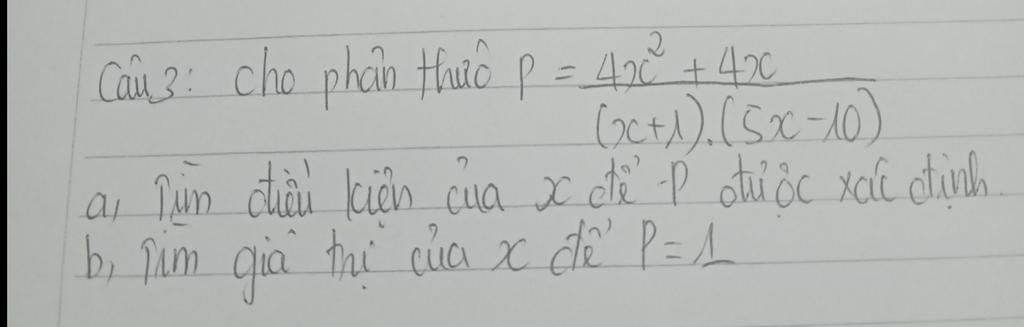 Câu 3: Cho phân thức P = 4x² + 4x / (x+1).(5x-10)
a, Tìm điều kiện của x để P được xác định
b, Tìm giá trị của x để P = 1